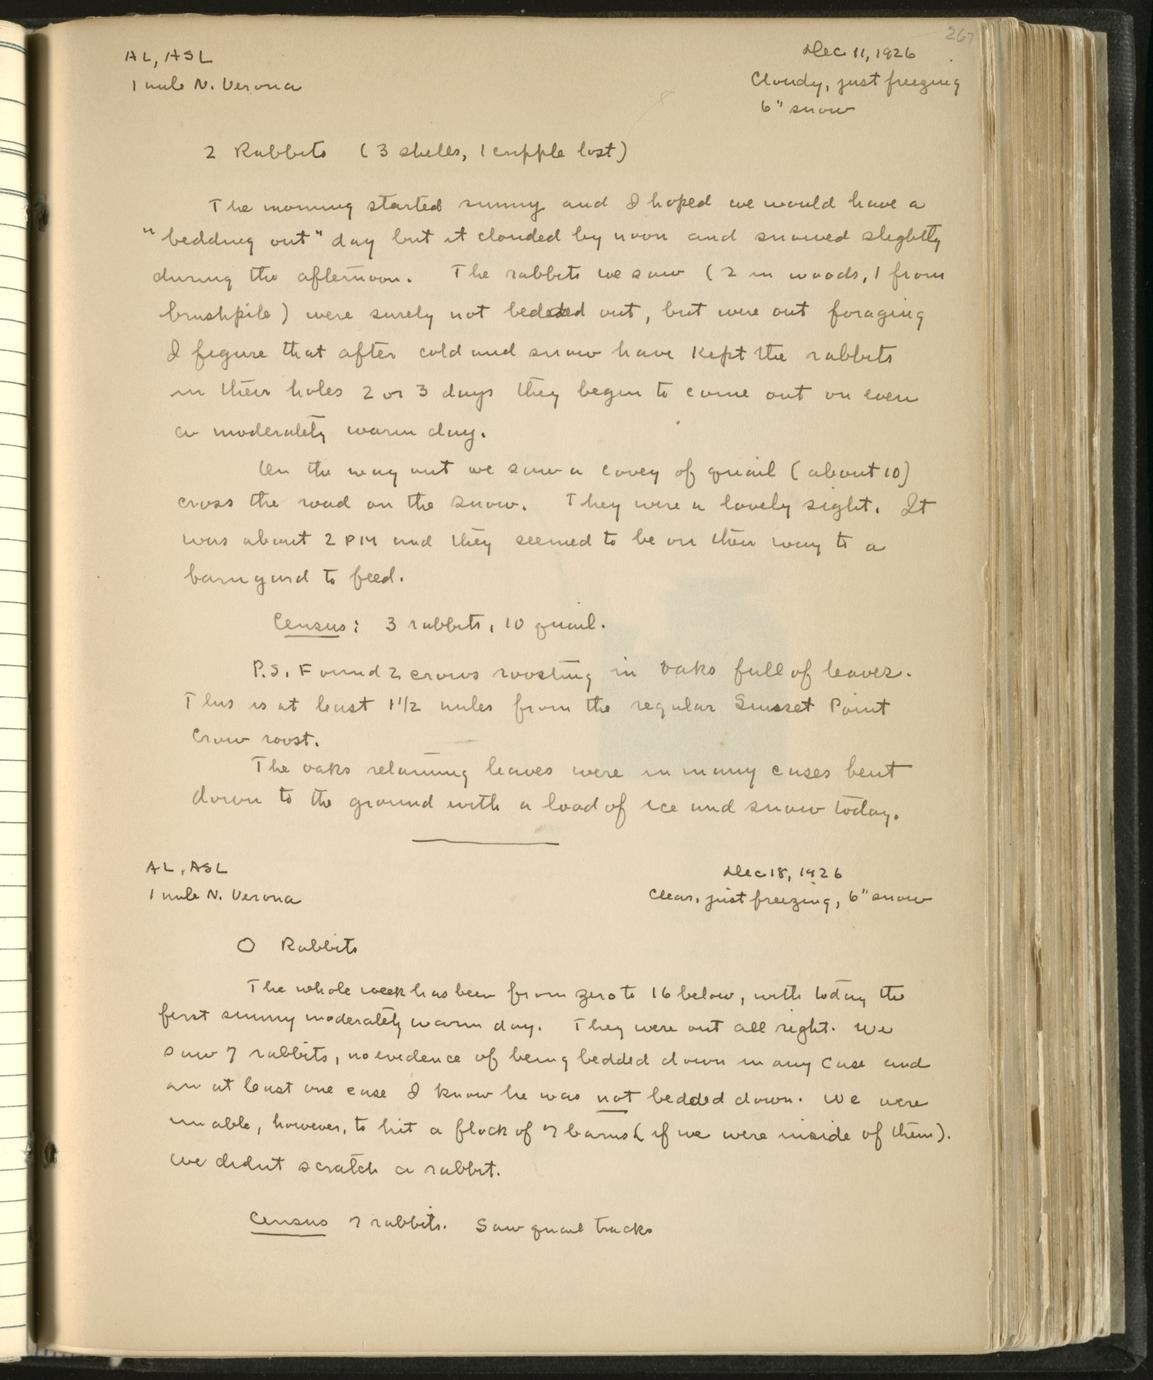 267
AL, ASL
Dec 11, 1926
1 mile N. Verona
Cloudy, just freezing
6" snow
2 Rabbits (3 shells, 1 cripple lost)
The morning started sunny and I hoped we would have a
"bedding out" day but it clouded by noon and snowed slightly
during the afternoon. The rabbits we saw (2 in woods, 1 from
brushpile) were surely not bedded out, but were out foraging
I figure that after cold and snow have kept the rabbits
in their holes 2 or 3 days they begin to come out on even
a moderately warm day.
On the way out we saw a covey of quail (about 10)
cross the road on the snow. They were a lovely sight. It
was about 2 PM and they seemed to be on their way to a
barnyard to feed.
Census: 3 rabbits, 10 quail.
P.S. Found 2 crows roosting in oaks full of leaves.
This is at least 1 1/2 miles from the regular Sunset Point
Crow roost.
The oaks retaining leaves were in many cases bent
down to the ground with a load of ice and snow today.
AL, ASL
Dec 18, 1926
1 mile N. Verona
Clear, just freezing, 6" snow
0 Rabbits
The whole week has been from zero to 16 below, with today the
first sunny moderately warm day. They were out all right. We
saw 7 rabbits, no evidence of being bedded down in any case and
in at least one case I know he was not bedded down. We were
unable, however, to hit a flock of 7 barns (if we were inside of them).
We didnt scratch a rabbit.
Census 7 rabbits. Saw quail tracks